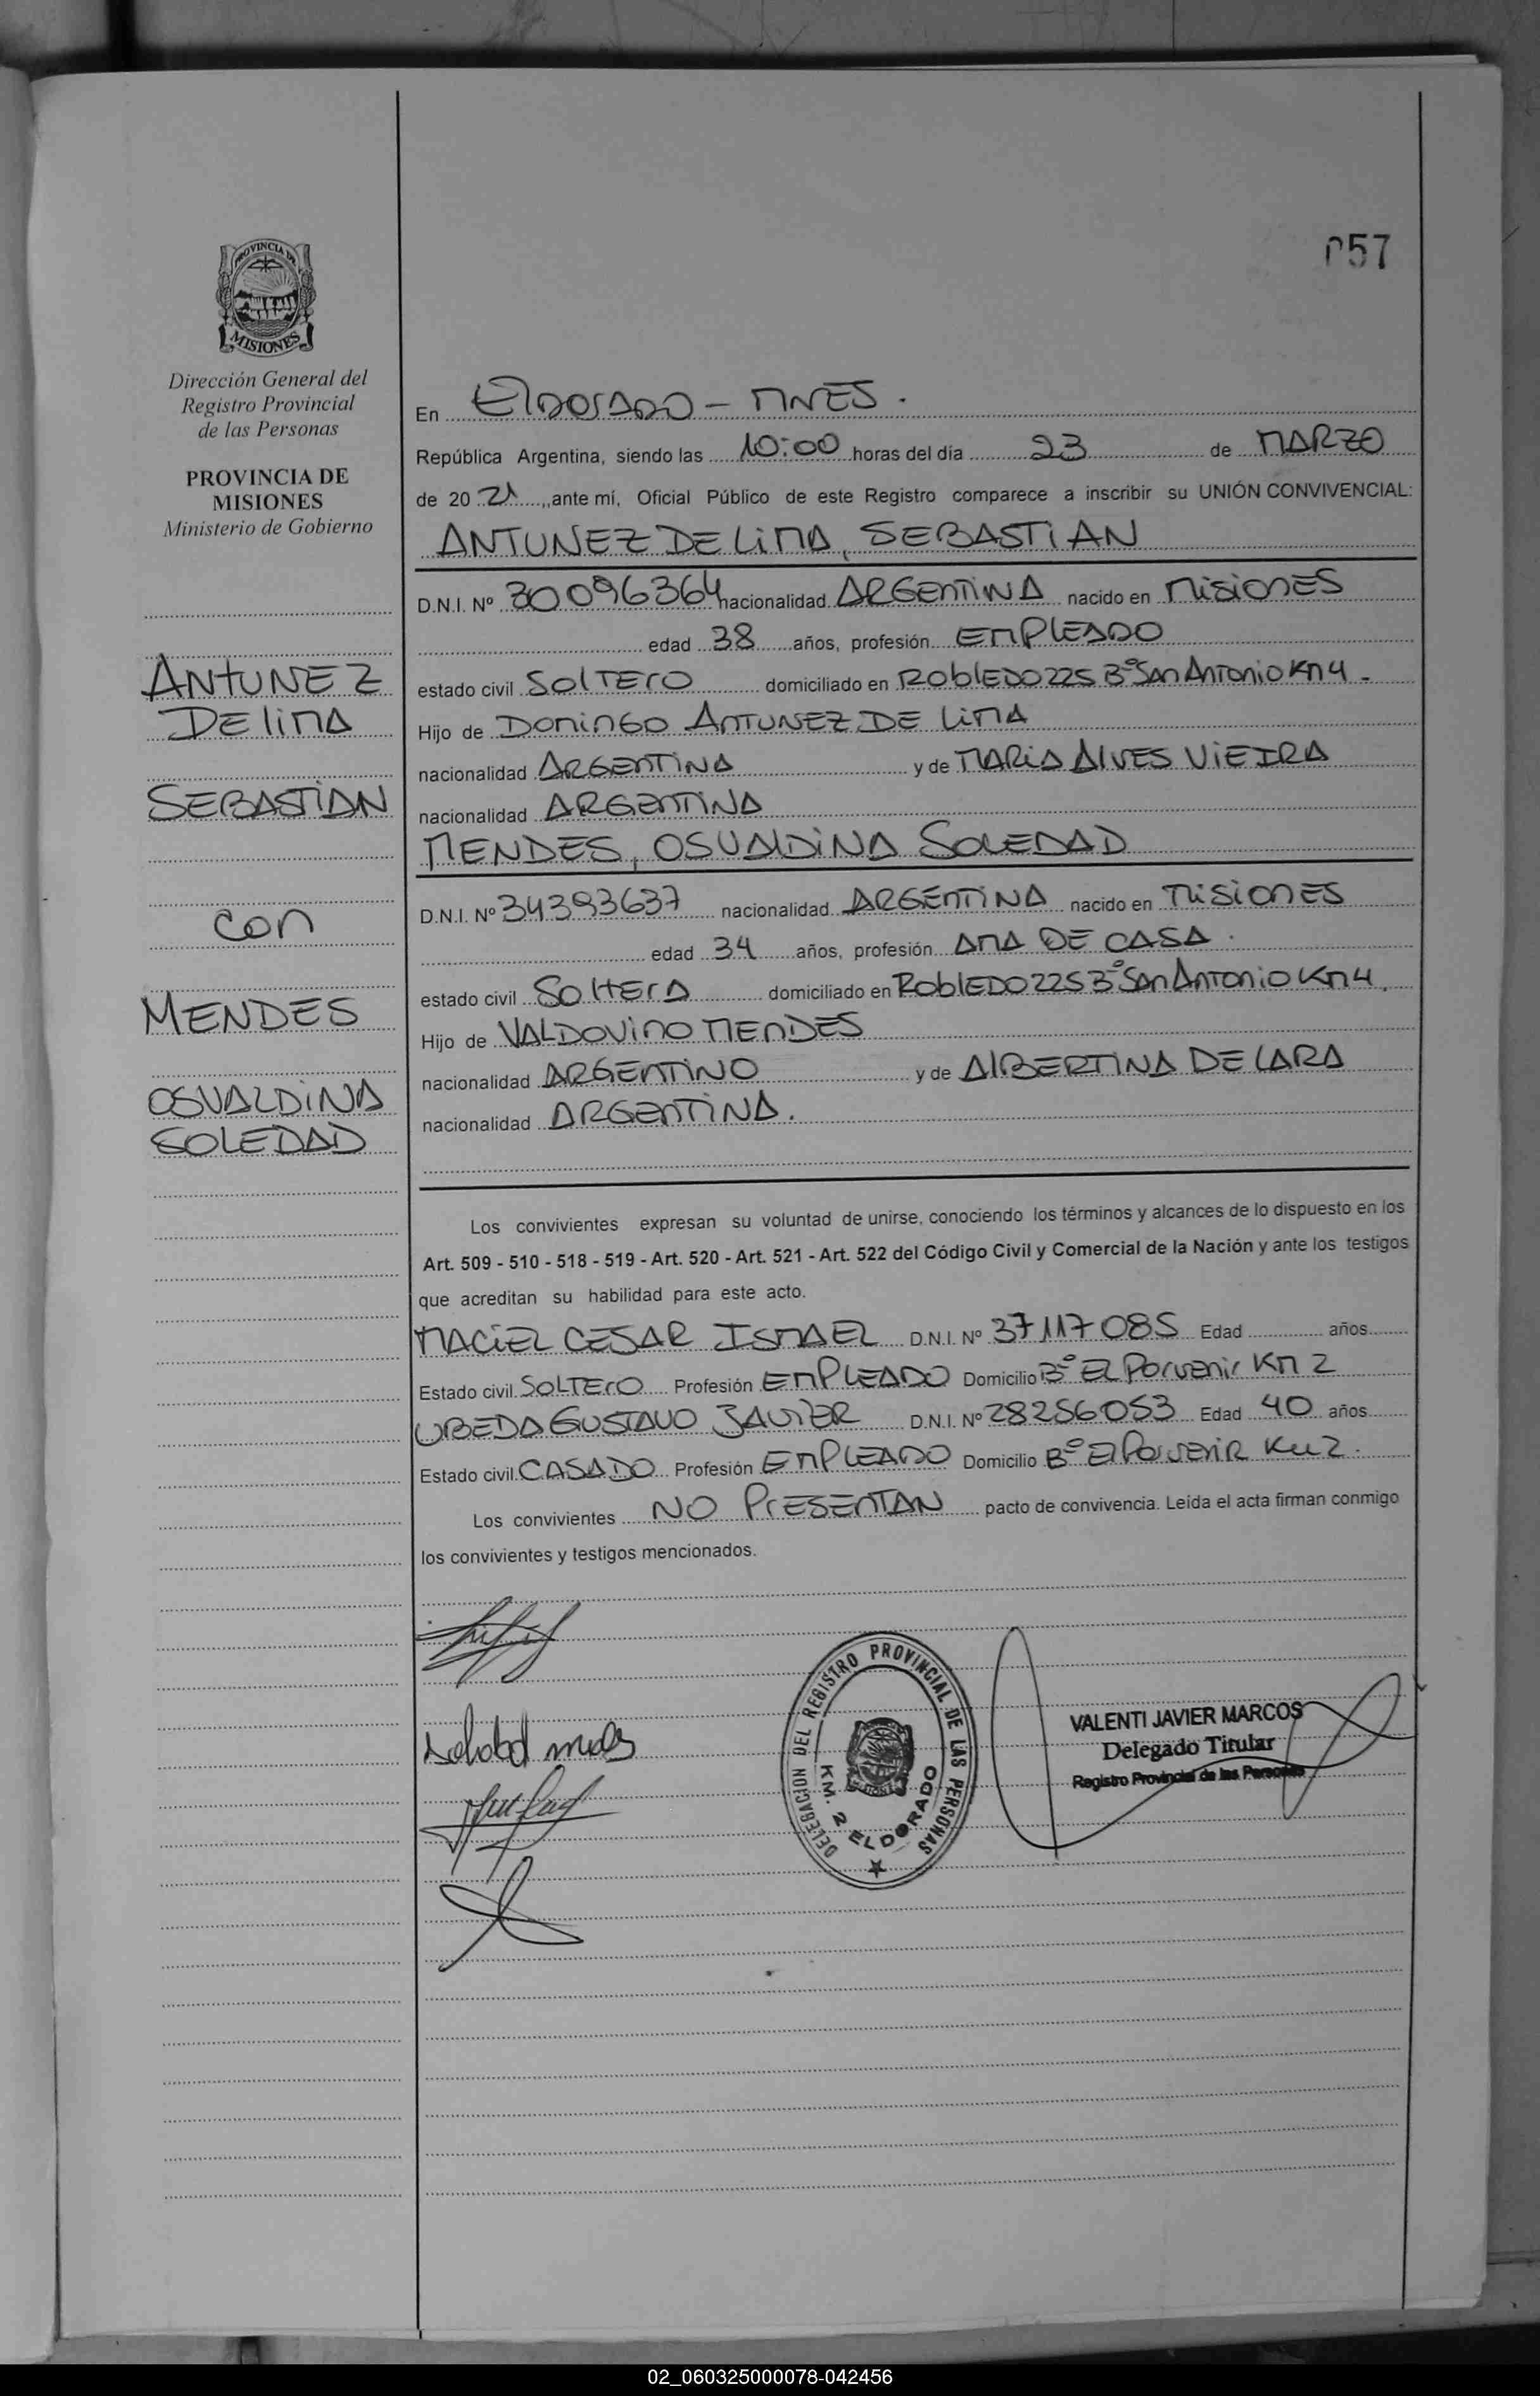 057
PROVINCIA DE
MISIONES
Dirección General del
Registro Provincial
de las Personas
PROVINCIA DE
MISIONES
Ministerio de Gobierno
ANTUNEZ
DE LIMA
SEBASTIAN
con
MENDES
OSVALDINA
SOLEDAD
En ELDORADO - MNES.
República Argentina, siendo las 10:00 horas del día 23 de MARZO
de 20 21, ante mí, Oficial Público de este Registro comparece a inscribir su UNIÓN CONVIVENCIAL:
ANTUNEZ DE LIMA, SEBASTIAN
D.N.I. Nº 30096364 nacionalidad ARGENTINA nacido en MISIONES
edad 38 años, profesión EMPLEADO
estado civil SOLTERO domiciliado en ROBLEDO 225 Bº SAN ANTONIO KM 4 -
Hijo de DOMINGO ANTUNEZ DE LIMA
nacionalidad ARGENTINA y de MARIA ALVES VIEIRA
nacionalidad ARGENTINA
MENDES, OSVALDINA SOLEDAD
D.N.I. Nº 34393637 nacionalidad ARGENTINA nacido en MISIONES
edad 34 años, profesión AMA DE CASA.
estado civil SOLTERA domiciliado en ROBLEDO 225 Bº SAN ANTONIO KM 4.
Hijo de VALDOVINO MENDES
nacionalidad ARGENTINO y de ALBERTINA DE LARA
nacionalidad ARGENTINA.
Los convivientes expresan su voluntad de unirse, conociendo los términos y alcances de lo dispuesto en los
Art. 509 - 510 - 518 - 519 - Art. 520 - Art. 521 - Art. 522 del Código Civil y Comercial de la Nación y ante los testigos
que acreditan su habilidad para este acto.
MACIEL CESAR ISMAEL D.N.I. Nº 37117085 Edad años
Estado civil SOLTERO Profesión EMPLEADO Domicilio Bº EL PORVENIR KM 2
UBEDA GUSTAVO JAVIER D.N.I. Nº 28256053 Edad 40 años
Estado civil CASADO Profesión EMPLEADO Domicilio Bº EL PORVENIR KM 2.
Los convivientes NO PRESENTAN pacto de convivencia. Leída el acta firman conmigo
los convivientes y testigos mencionados.
DELEGACION DEL REGISTRO PROVINCIAL DE LAS PERSONAS
KM. 2 ELDORADO
VALENTI JAVIER MARCOS
Delegado Titular
Registro Provincial de las Personas
02_060325000078-042456